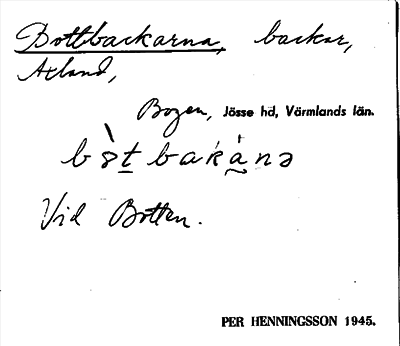 Bottbackarna, backar,
Axland,
Bogen, Jösse hd, Värmlands län.
Vid Botten.
PER HENNINGSSON 1945.